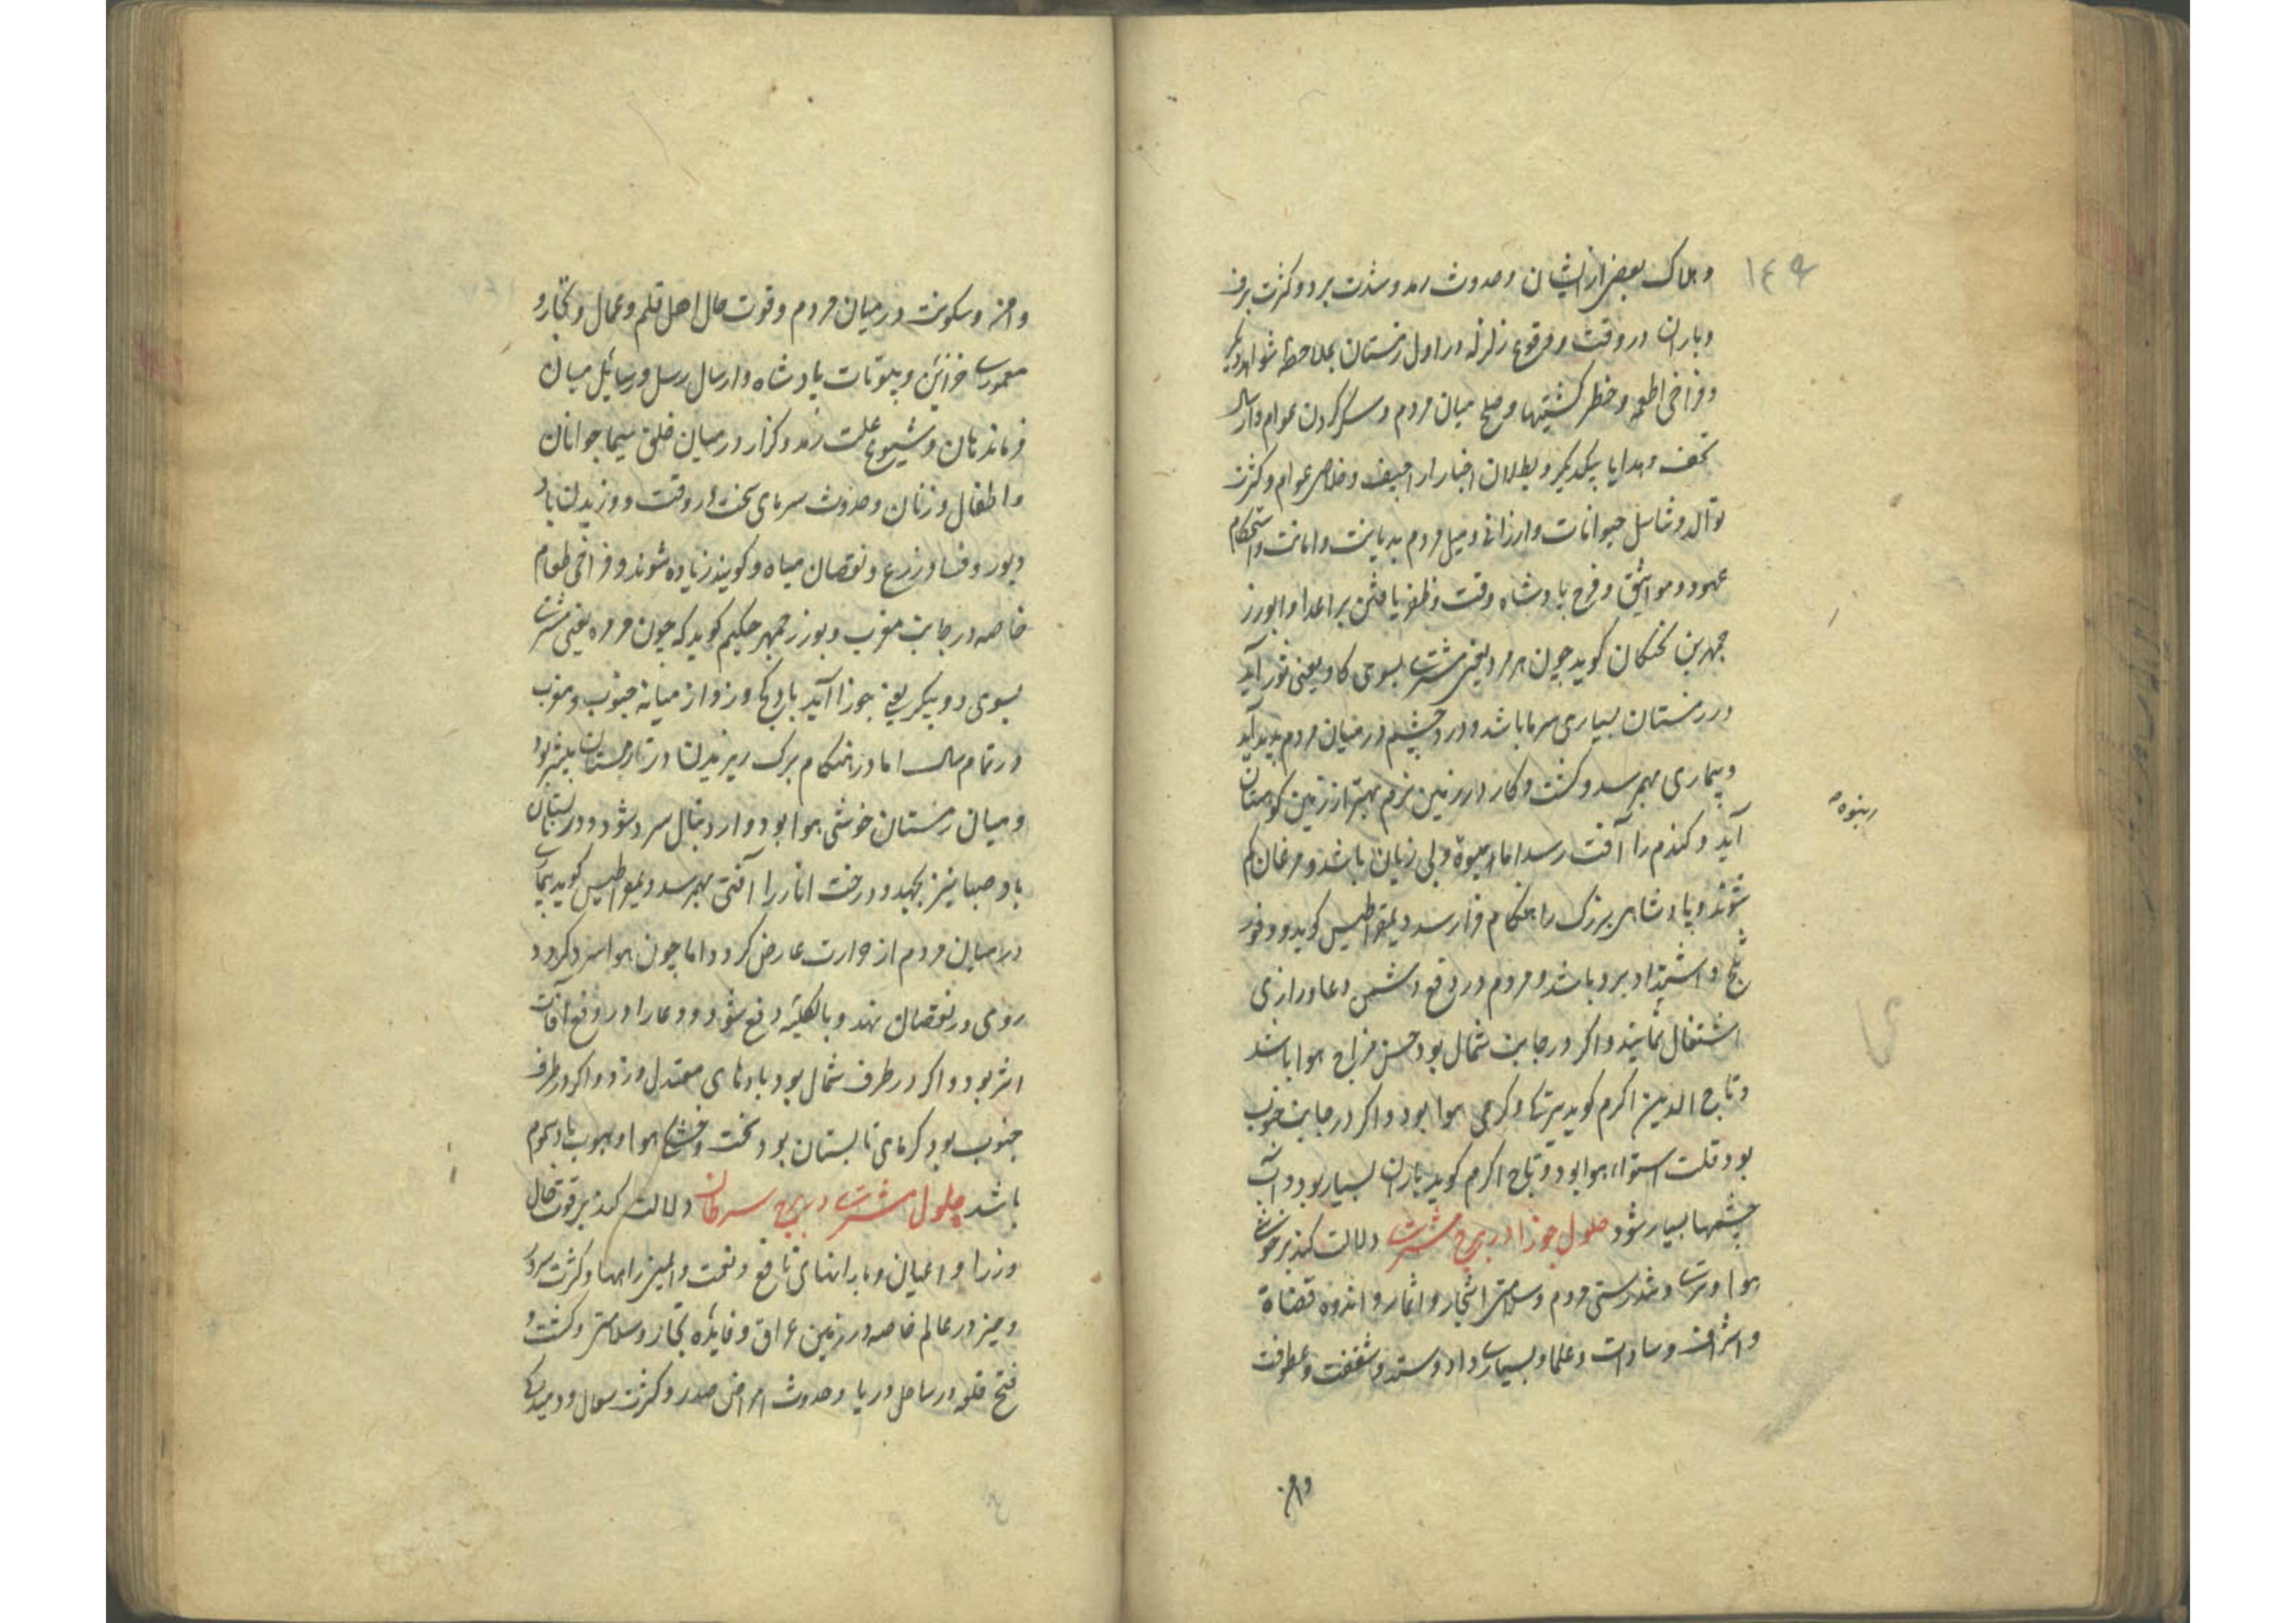 ۱۴۹
وهلاک بعضی از ایشان وحدوث رمد وشدت برد وکثرت برف
وباران در وقت ووقوع زلزله در اول زمستان بملاحظه شواهد دیگر
وفراخی اطعمه وخطر کشتیها وصلح میان مردم وسفر کردن عوام وارسال
تحف وهدایا بیکدیگر وبطلان اخبار اراجیف وخلاص عوام وکثرت
توالد وتناسل حیوانات وارزانی ومیل مردم بدیانت وامانت واستحکام
عهود ومواثیق وفرح بادشاه وقت وظفر یافتن بر اعدا وابورز
جمهر بن بختکان کوید چون هرمزد یعنی مشتری بسوی کاو یعنی ثور آید
در زمستان بسیاری سرما باشد ودرد چشم در میان مردم پدید آید
وبیماری بهم رسد وکشت وکار در زمین نرم بهتر از زمین کوهستان
آید وکندم را آفت رسد اما میوه بی زیان باشد ومرغان کم
ربیوه
شوند وپادشاهی بزرک را هنکام فرا رسد دیمقراطیس کوید وفور
ثلج واشتداد برد باشد ومردم در دفع دشمن دعا وزاری
اشتغال نمایند واکر در جانب شمال بود حسن مزاج هوا باشد
وتاج الدین اکرم کوید تری وکرمی هوا بود واکر در جانب جنوب
بود قلت استواء هوا بود وتاج اکرم کوید باران بسیار بود وآب
چشمها بسیار شود حلول جوزا در برج مشتری دلالت کند بر خوشی
هوا وتری وتندرستی مردم وسلامتی اشجار واثمار واندوه قضاة
واشراف وسادات وعلما وبسیاری داد وستد وشفقت وعطوفت
وامن
وامن وسکونت در میان مردم وقوت حال اهل قلم وعمال وتجار و
معموری خزائن وبیوتات پادشاه وارسال رسل ورسائل میان
فرماندهان وشیوع علت زمد وکزار در میان خلق سیما جوانان
واطفال وزنان وحدوث سرمای سخت در وقت ووزیدن باد
دبور وفساد زرع ونقصان میاه وکویند زیاده شوند وفراخی طعام
خاصه در جانب مغرب وبورزجمهر حکیم کوید که چون هرمزد یعنی مشتری
بسوی دوپیکر یعنی جوزا آید باد کج وزد از میانه جنوب ومغرب
در تمام سال اما در هنکام برک ریزیدن در تا زمستان بیشتر بود
ومیان زمستان خوشی هوا بود ودر دنبال سرد شود ودر تابستان
باد صبا نیز بجهد ودرخت انار را آفتی بهم رسد دیمقراطیس کوید بیماری
در میان مردم از حرارت عارض کردد اما چون هوا سرد کردد
رو می در نقصان نهد وبالکلیه دفع شود ودعا را در دفع آفات
اثر بود واکر در طرف شمال بود بادهای معتدل وزد واکر در طرف
جنوب بود کرمای تابستان بود سخت وخشکی هوا وهبوب باد سموم
باشد حلول مشتری در برج سرطان دلالت کند بر قوت حال
وزرا واعیان وبارانهای نافع ونعمت وایمنی راهها وکثرت سردی
وچیز در عالم خاصه در زمین عراق وفایده تجار وسلامتی وکشت و
فتح قلعه در ساحل دریا وحدوث امراض صدر وکثرت سعال ودمیدن